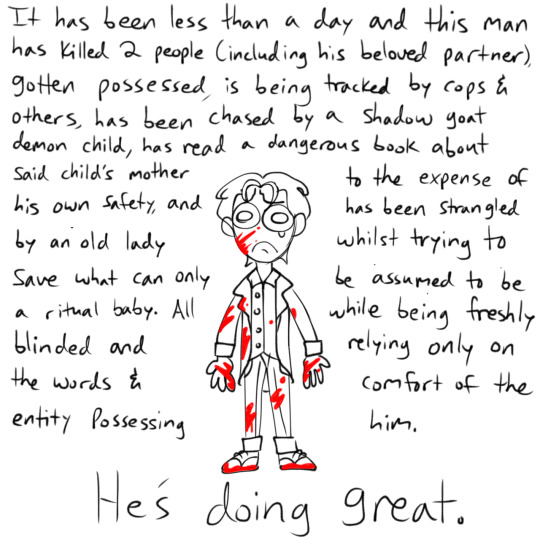 It has been less than a day and this man
has killed 2 people (including his beloved partner),
gotten possessed, is being tracked by cops &
others, has been chased by a shadow goat
demon child, has read a dangerous book about
said child's mother to the expense of
his own safety, and has been strangled
by an old lady whilst trying to
save what can only be assumed to be
a ritual baby. All while being freshly
blinded and relying only on
the words & comfort of the
entity possessing him.
He's doing great.